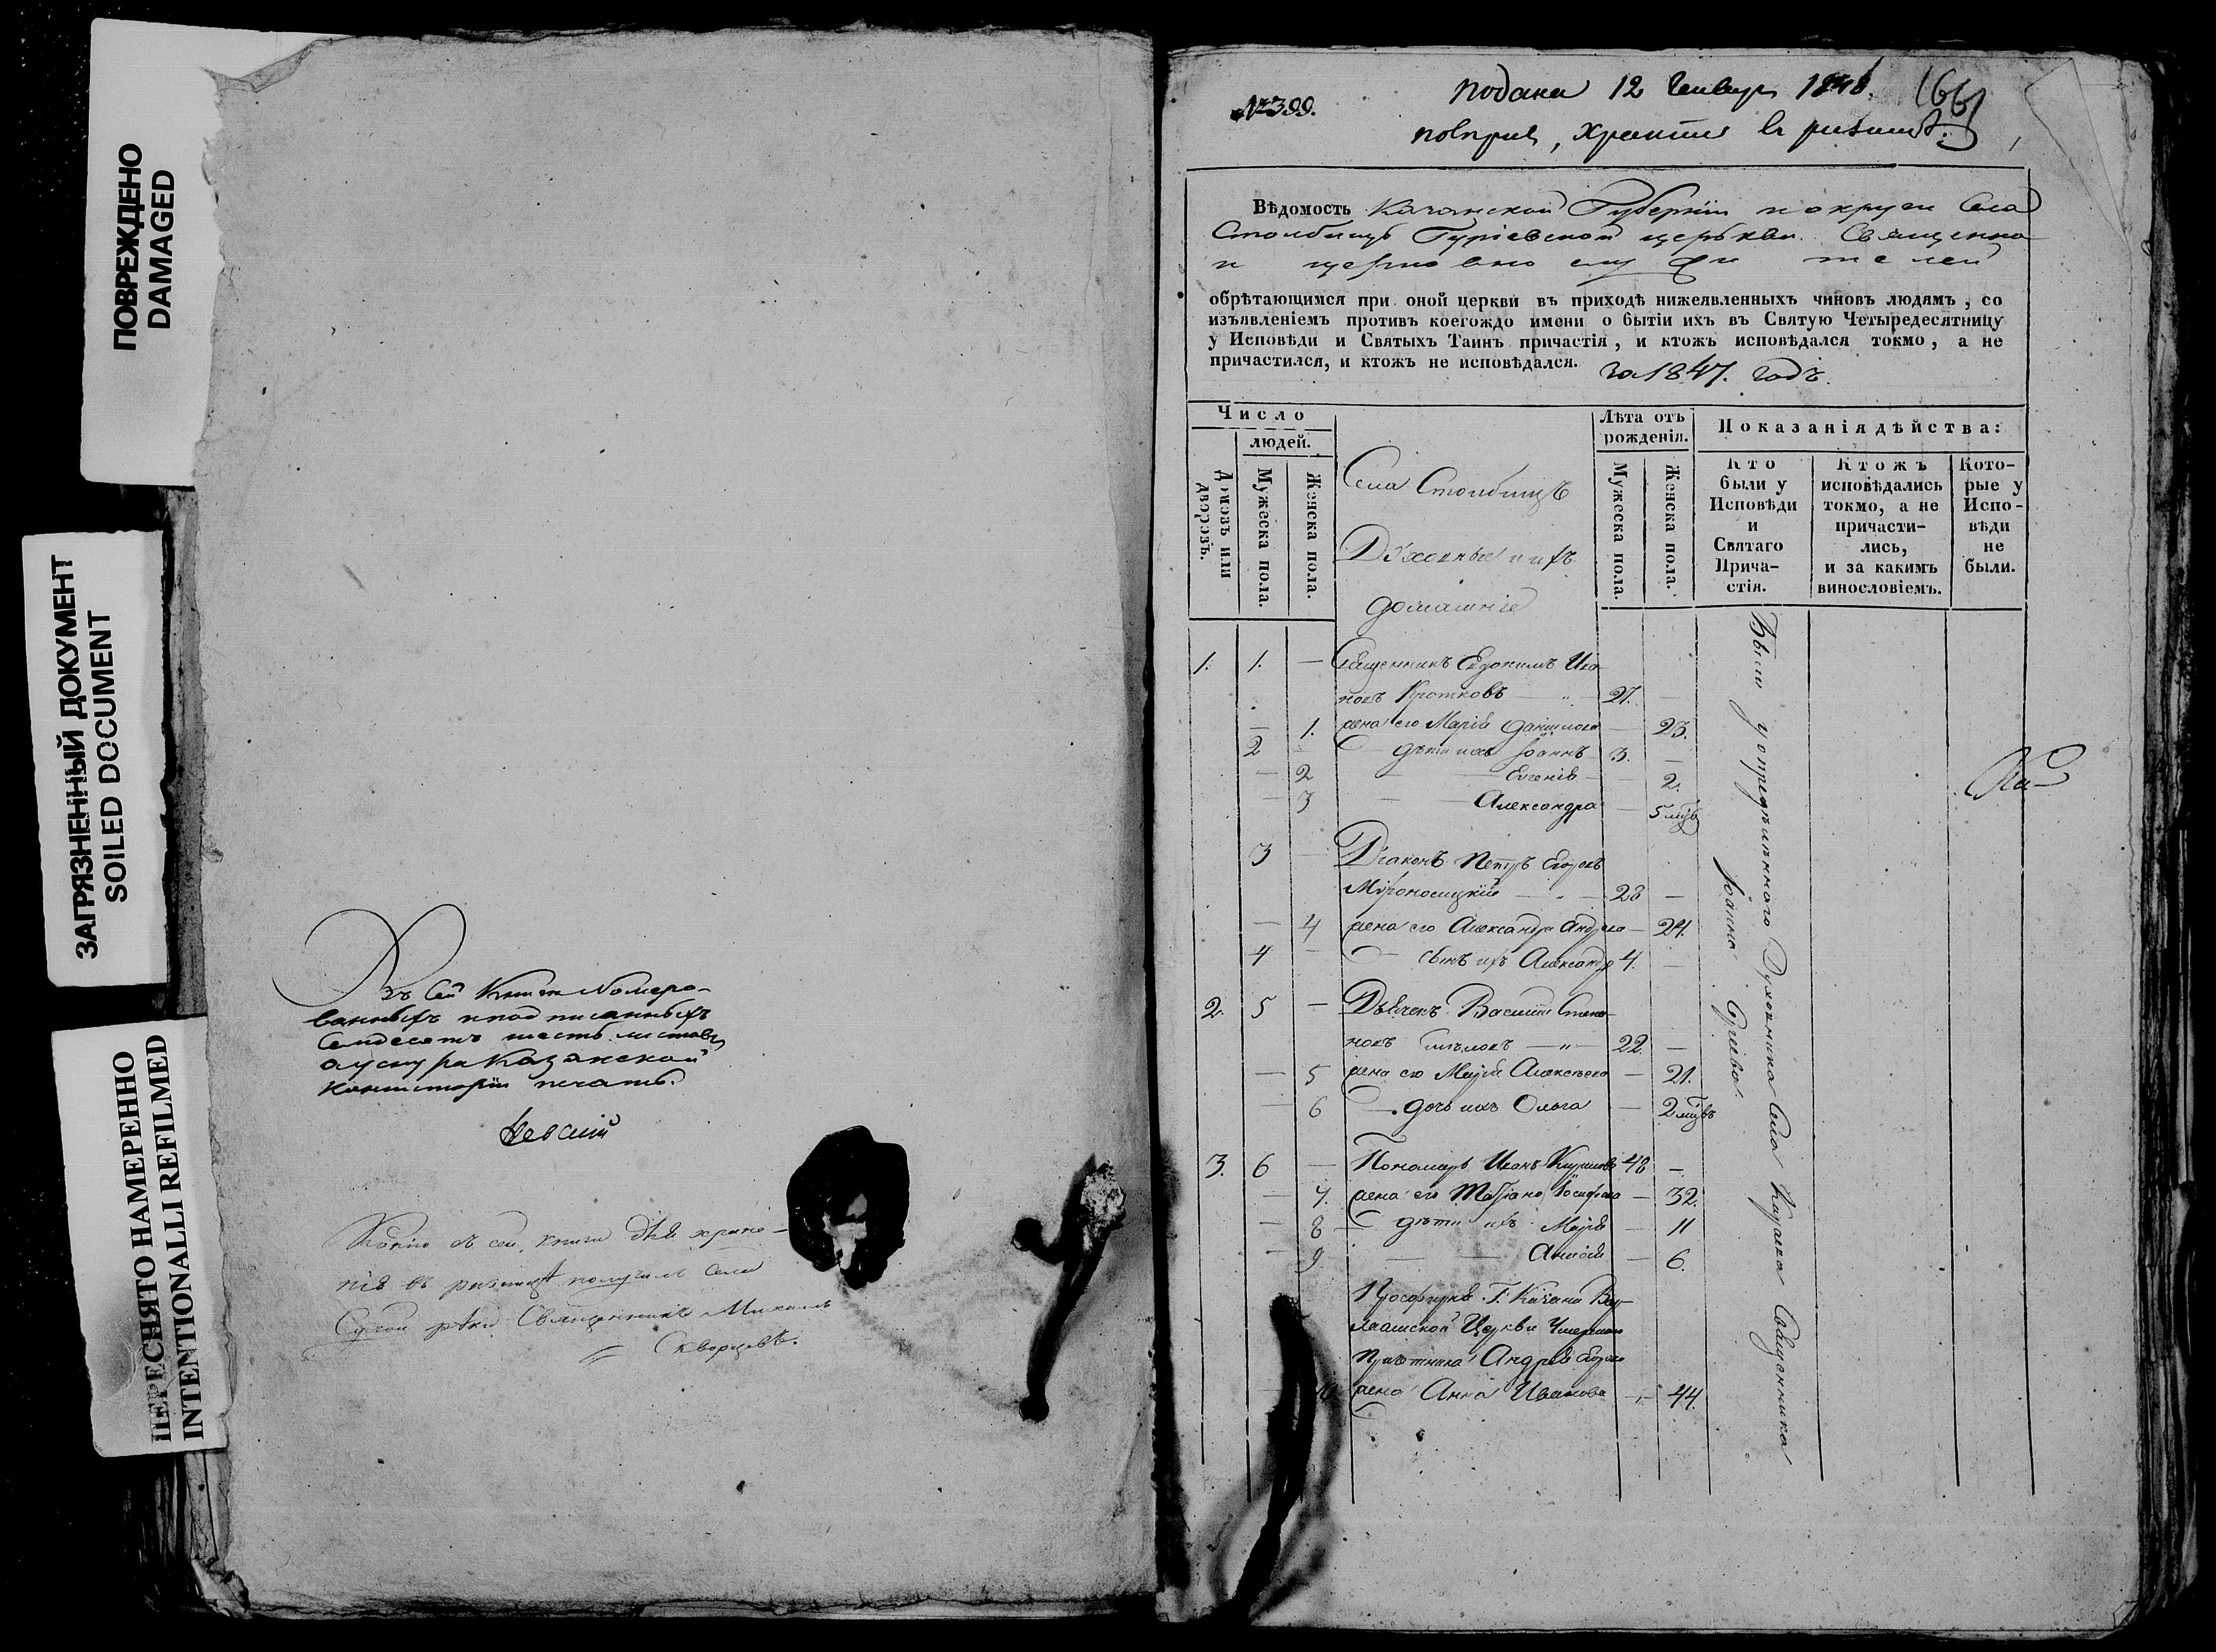 ПОВРЕЖДЕНО
DAMAGED
ЗАГРЯЗНЕННЫЙ ДОКУМЕНТ
SOILED DOCUMENT
ПЕРЕСНЯТО НАМЕРЕННО
INTENTIONALLI REFILMED
Въ сей книге номеро-
ванныхъ и подписанныхъ
семдесятъ шесть листовъ
а у снура Казанской
Консисторіи печать.
Копію съ сей книги для хране-
нія въ ризницѣ получилъ села
Сухой рѣки Священникъ Михаилъ
Скворцовъ.
№ 399.
подана 12 Генваря 1848. 166
хранить въ ризницѣ.
Вѣдомость Казанской Губерніи и округи Села
Столбищъ Гуріевской церькви Священно
и церковнослужителей
обрѣтающимся при оной церкви въ приходѣ нижеявленныхъ чиновъ людямъ, со
изъявленіемъ противъ коегождо имени о бытіи ихъ въ Святую Четыредесятницу
у Исповѣди и Святыхъ Таинъ причастія, и ктожъ исповѣдался токмо, а не
причастился, и ктожъ не исповѣдался. за 1847. годъ.
Число
людей.
Домовъ или дворовъ.
Мужеска пола.
Женска пола.
Села Столбищъ
Духовные и ихъ
домашніе
Лѣта отъ
рожденія.
Мужеска пола.
Женска пола.
Показанія дѣйства:
Кто
были у
Исповѣди
и
Святаго
Прича-
стія.
Ктожъ
исповѣдались
токмо, а не
причасти-
лись,
и за какимъ
винословіемъ.
Кото-
рые у
Испо-
вѣди
не
были.
1. 1. — Священникъ Евдокимъ Ива-
новъ Кротковъ — 27. —
— 1. жена его Марія Данилова — 23.
2 дѣти ихъ Іоаннъ 3. —
— 2 Евгенія — 2.
— 3 Александра — 5 мцъ
3 — Діаконъ Петръ Егоровъ
Мѵроносицкій — 23 —
— 4 жена его Александра Андреева — 24.
4 — сынъ ихъ Александръ 4. —
2. 5 — Дьячекъ Василій Степа-
новъ — 22. —
— 5 жена его Марія Алексѣева — 21.
— 6 дочь ихъ Ольга — 2 мцвъ
3. 6 — Пономарь Иванъ 48 —
— 7. жена его Татіана Іосифова — 32.
— 8 дѣти ихъ Марія — 11
— 9 — 6.
Просфирня Г. Казана
Церкви Умершаго
Андрея
10 жена Анна Иванова — 44.
Были у опредѣленнаго Духовника Села Священника
Іоанна